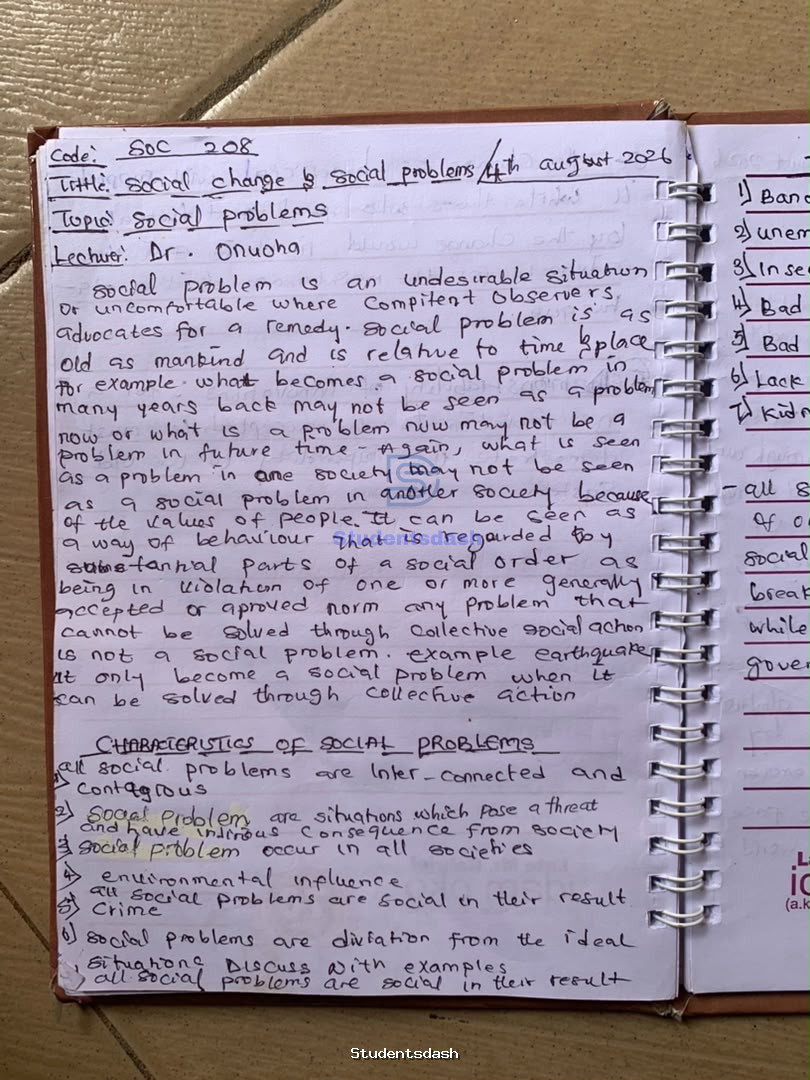 Code: SOC 208
Tittle: social change & social problems / 4th august 2026
Topic: social problems
Lecturer: Dr. Onuoha
social problem is an undesirable situation
or uncomfortable where Compitent Observers
advocates for a remedy. social problem is as
old as mankind and is relative to time & place
for example. what becomes a social problem in
many years back may not be seen as a problem
now or what is a problem now may not be a
problem in future time - Again, what is seen
as a problem in one society may not be seen
as a social problem in another society because
of the values of people. It can be seen as
a way of behaviour that is regarded by
substantial parts of a social order as
being in violation of one or more generally
accepted or aproved norm any problem that
cannot be solved through collective social action
is not a social problem. example earthquake
it only become a social problem when it
can be solved through collective action
CHARACTERISTICS OF SOCIAL PROBLEMS
1) all social problems are Inter-connected and
contagious
2) Social problem are situations which pose a threat
and have consequence from society
3) social problem occur in all societies
4) environmental influence
5) all social problems are social in their result
Crime
6) social problems are diviation from the ideal
situations Discuss with examples
all social problems are social in their result
1) Band
2) unem
3) Inse
4) Bad
5) Bad
6) Lack
7) Kidn
- all s
of o
social
break
while
gover
L
(a.k
Studentsdash
Studentsdash